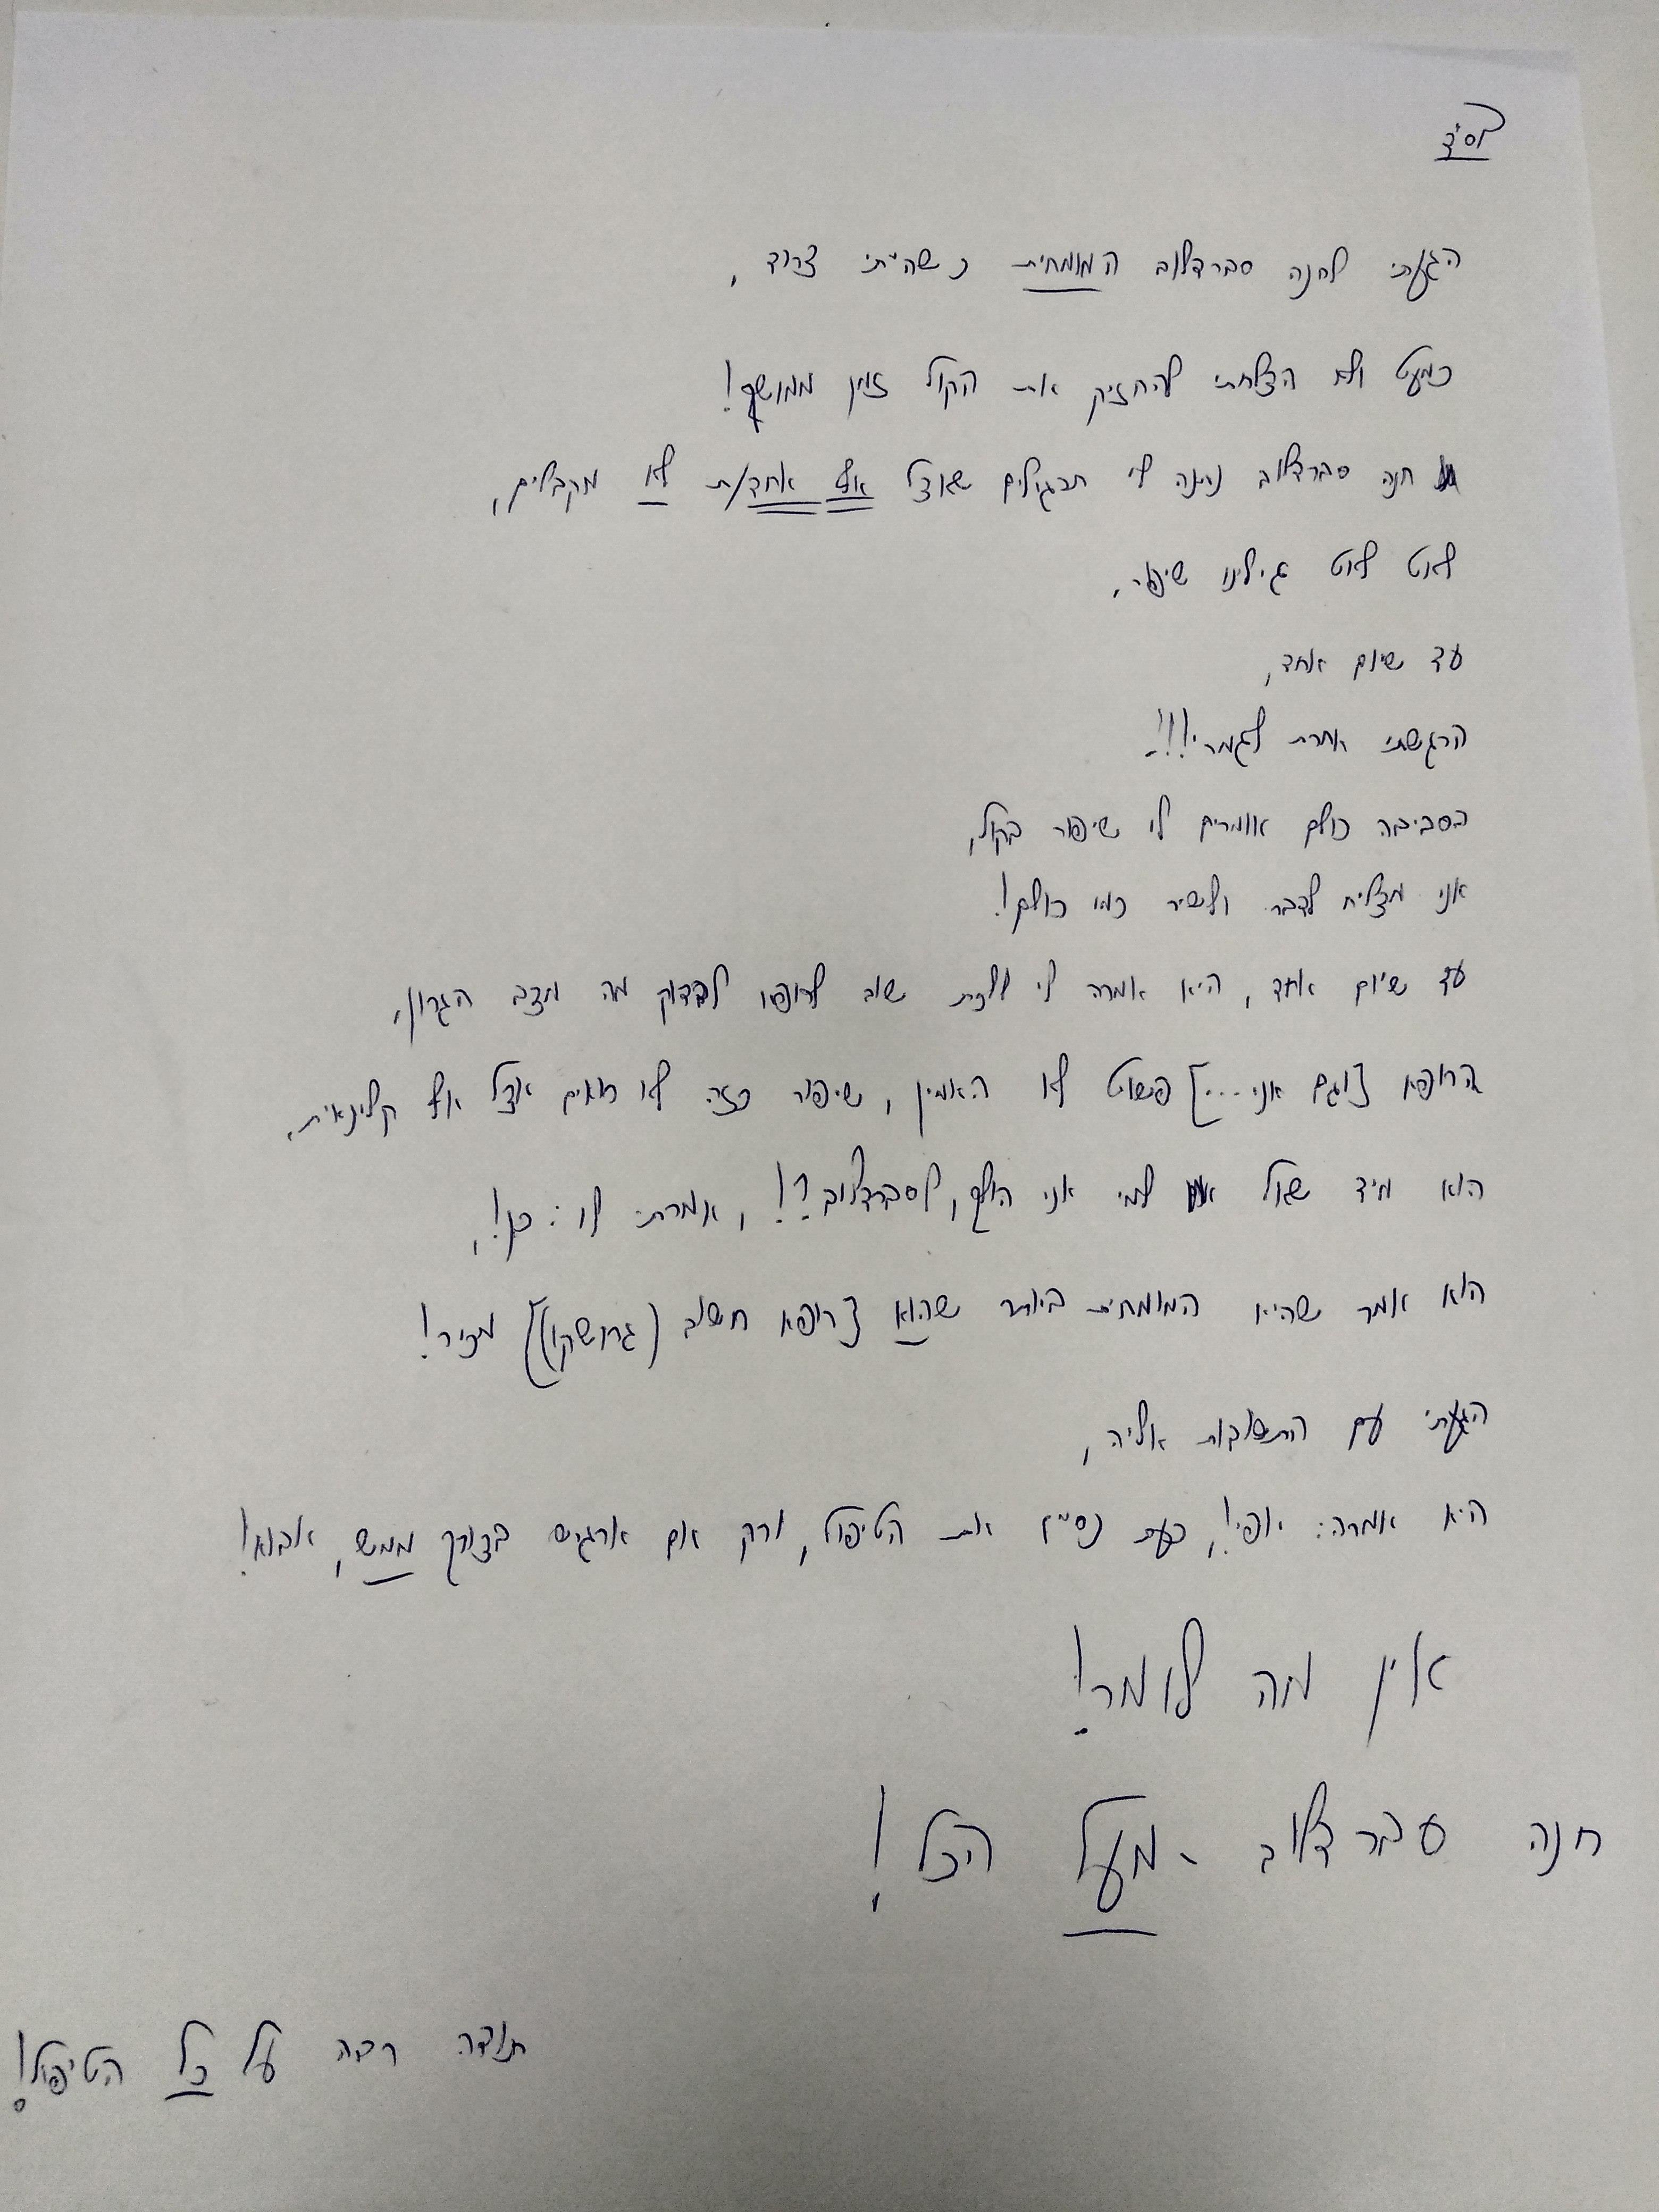 בס"ד
הגעתי לחנה סברדלוב המומחית כשהייתי צרוד,
כמעט ולא הצלחתי להחזיק את הקול זמן ממושך!
חנה סברדלוב נתנה לי תרגילים שאצל אף אחד/ת לא מקבלים,
לאט לאט גילינו שיפור,
עד שיום אחד,
הרגשתי אחרת לגמרי!!!
בסביבה כולם אומרים לי שיפור בקול,
אני מצליח לדבר ולשיר כמו כולם!
עד שיום אחד, היא אמרה לי ללכת שוב לרופא לבדוק מה מצב הגרון,
הרופא [וגם אני...] פשוט לא האמין, שיפור כזה לא רואים אצל אף קלינאית,
הוא מיד שאל למי אני הולך, לסברדלוב?!, אמרתי לו: כן!,
הוא אמר שהיא המומחית ביותר שהוא [רופא חשוב (גרושקו)] מכיר!
הגעתי עם התשובות אליה,
היא אמרה: יופי!, כעת נסיים את הטיפול, ורק אם ארגיש בצורך ממש, אבוא!
אין מה לומר!
חנה סברדלוב - מעל הכל!
תודה רבה על כל הטיפול!